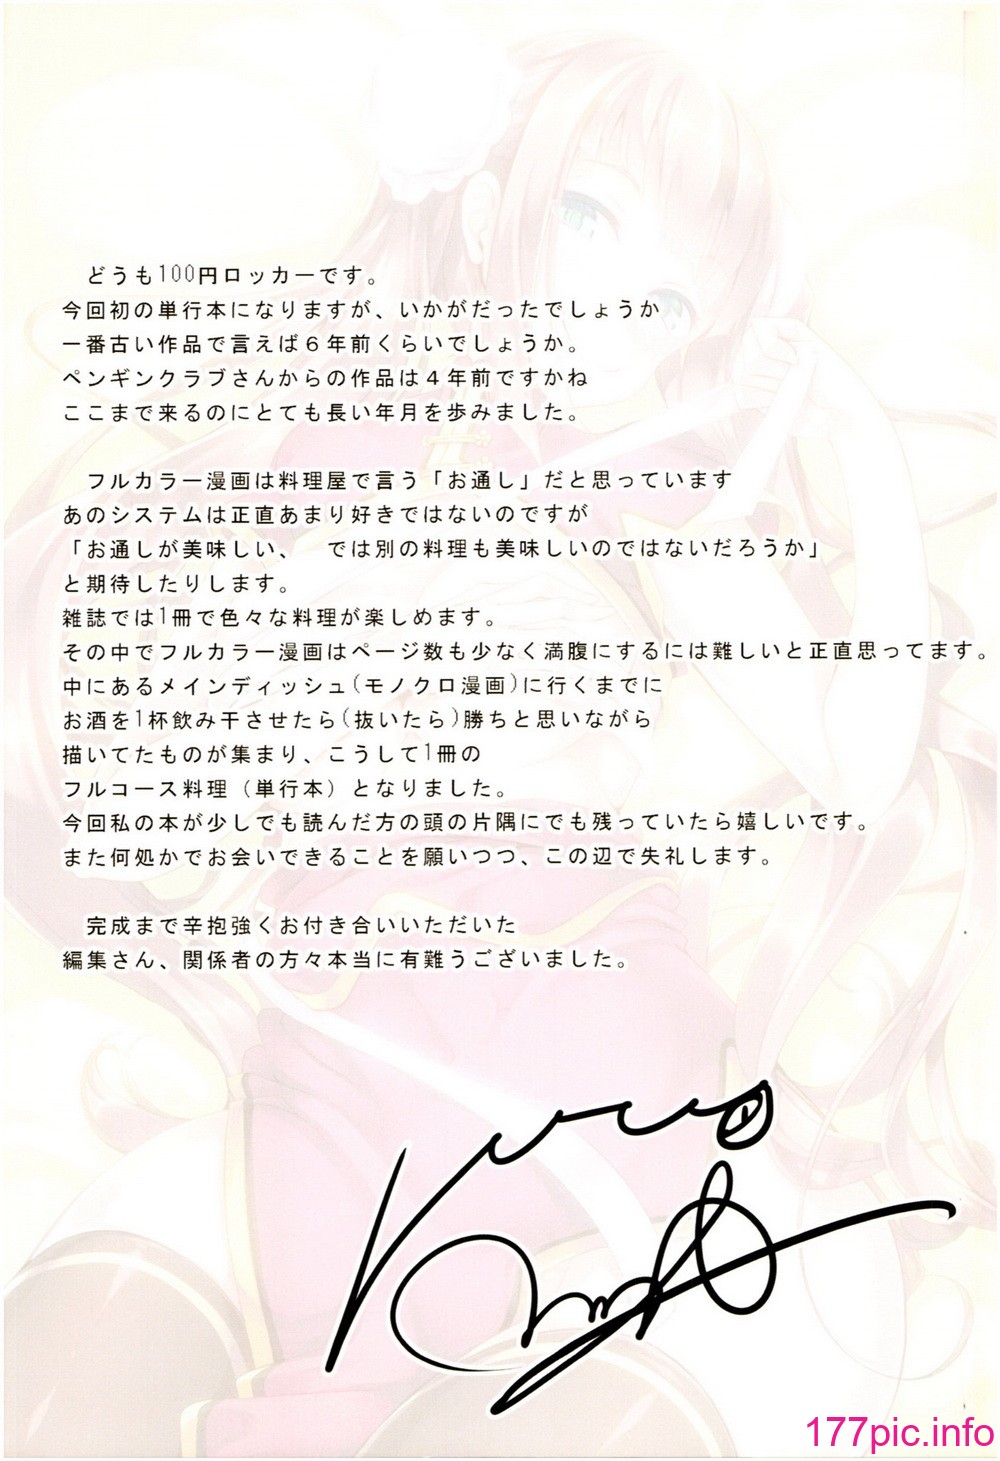 どうも100円ロッカーです。
今回初の単行本になりますが、いかがだったでしょうか
一番古い作品で言えば６年前くらいでしょうか。
ペンギンクラブさんからの作品は４年前ですかね
ここまで来るのにとても長い年月を歩みました。
フルカラー漫画は料理屋で言う「お通し」だと思っています
あのシステムは正直あまり好きではないのですが
「お通しが美味しい、　では別の料理も美味しいのではないだろうか」
と期待したりします。
雑誌では1冊で色々な料理が楽しめます。
その中でフルカラー漫画はページ数も少なく満腹にするには難しいと正直思ってます。
中にあるメインディッシュ(モノクロ漫画)に行くまでに
お酒を1杯飲み干させたら(抜いたら)勝ちと思いながら
描いてたものが集まり、こうして1冊の
フルコース料理（単行本）となりました。
今回私の本が少しでも読んだ方の頭の片隅にでも残っていたら嬉しいです。
また何処かでお会いできることを願いつつ、この辺で失礼します。
完成まで辛抱強くお付き合いいただいた
編集さん、関係者の方々本当に有難うございました。
177pic.info